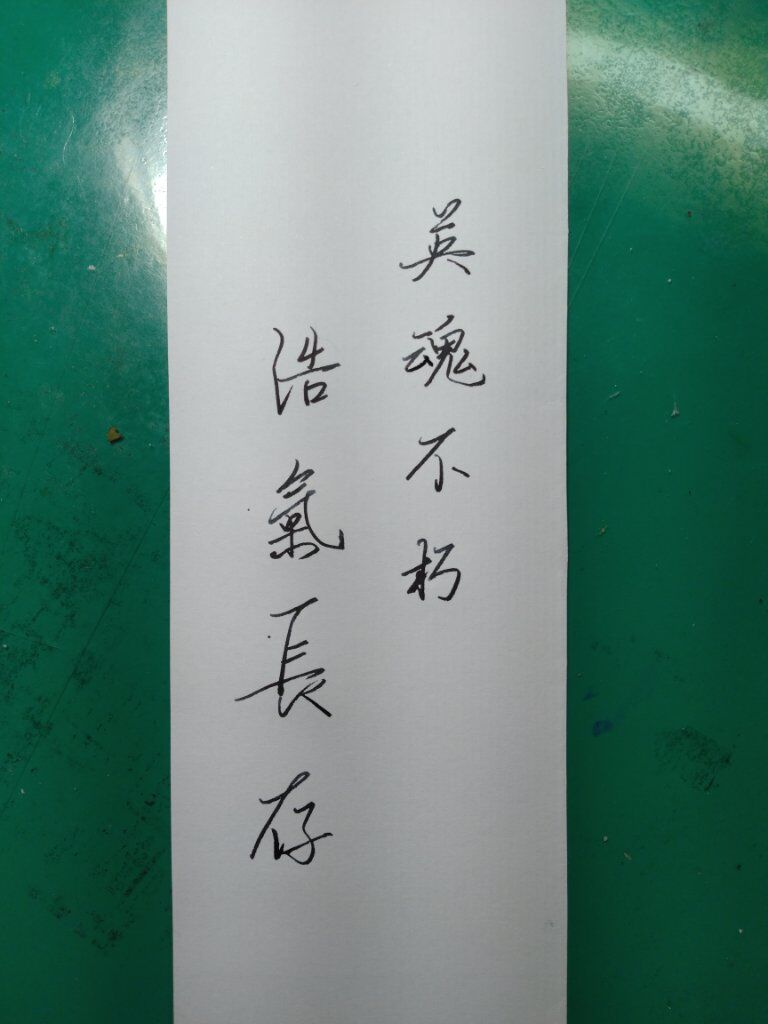 英魂不朽
浩氣長存